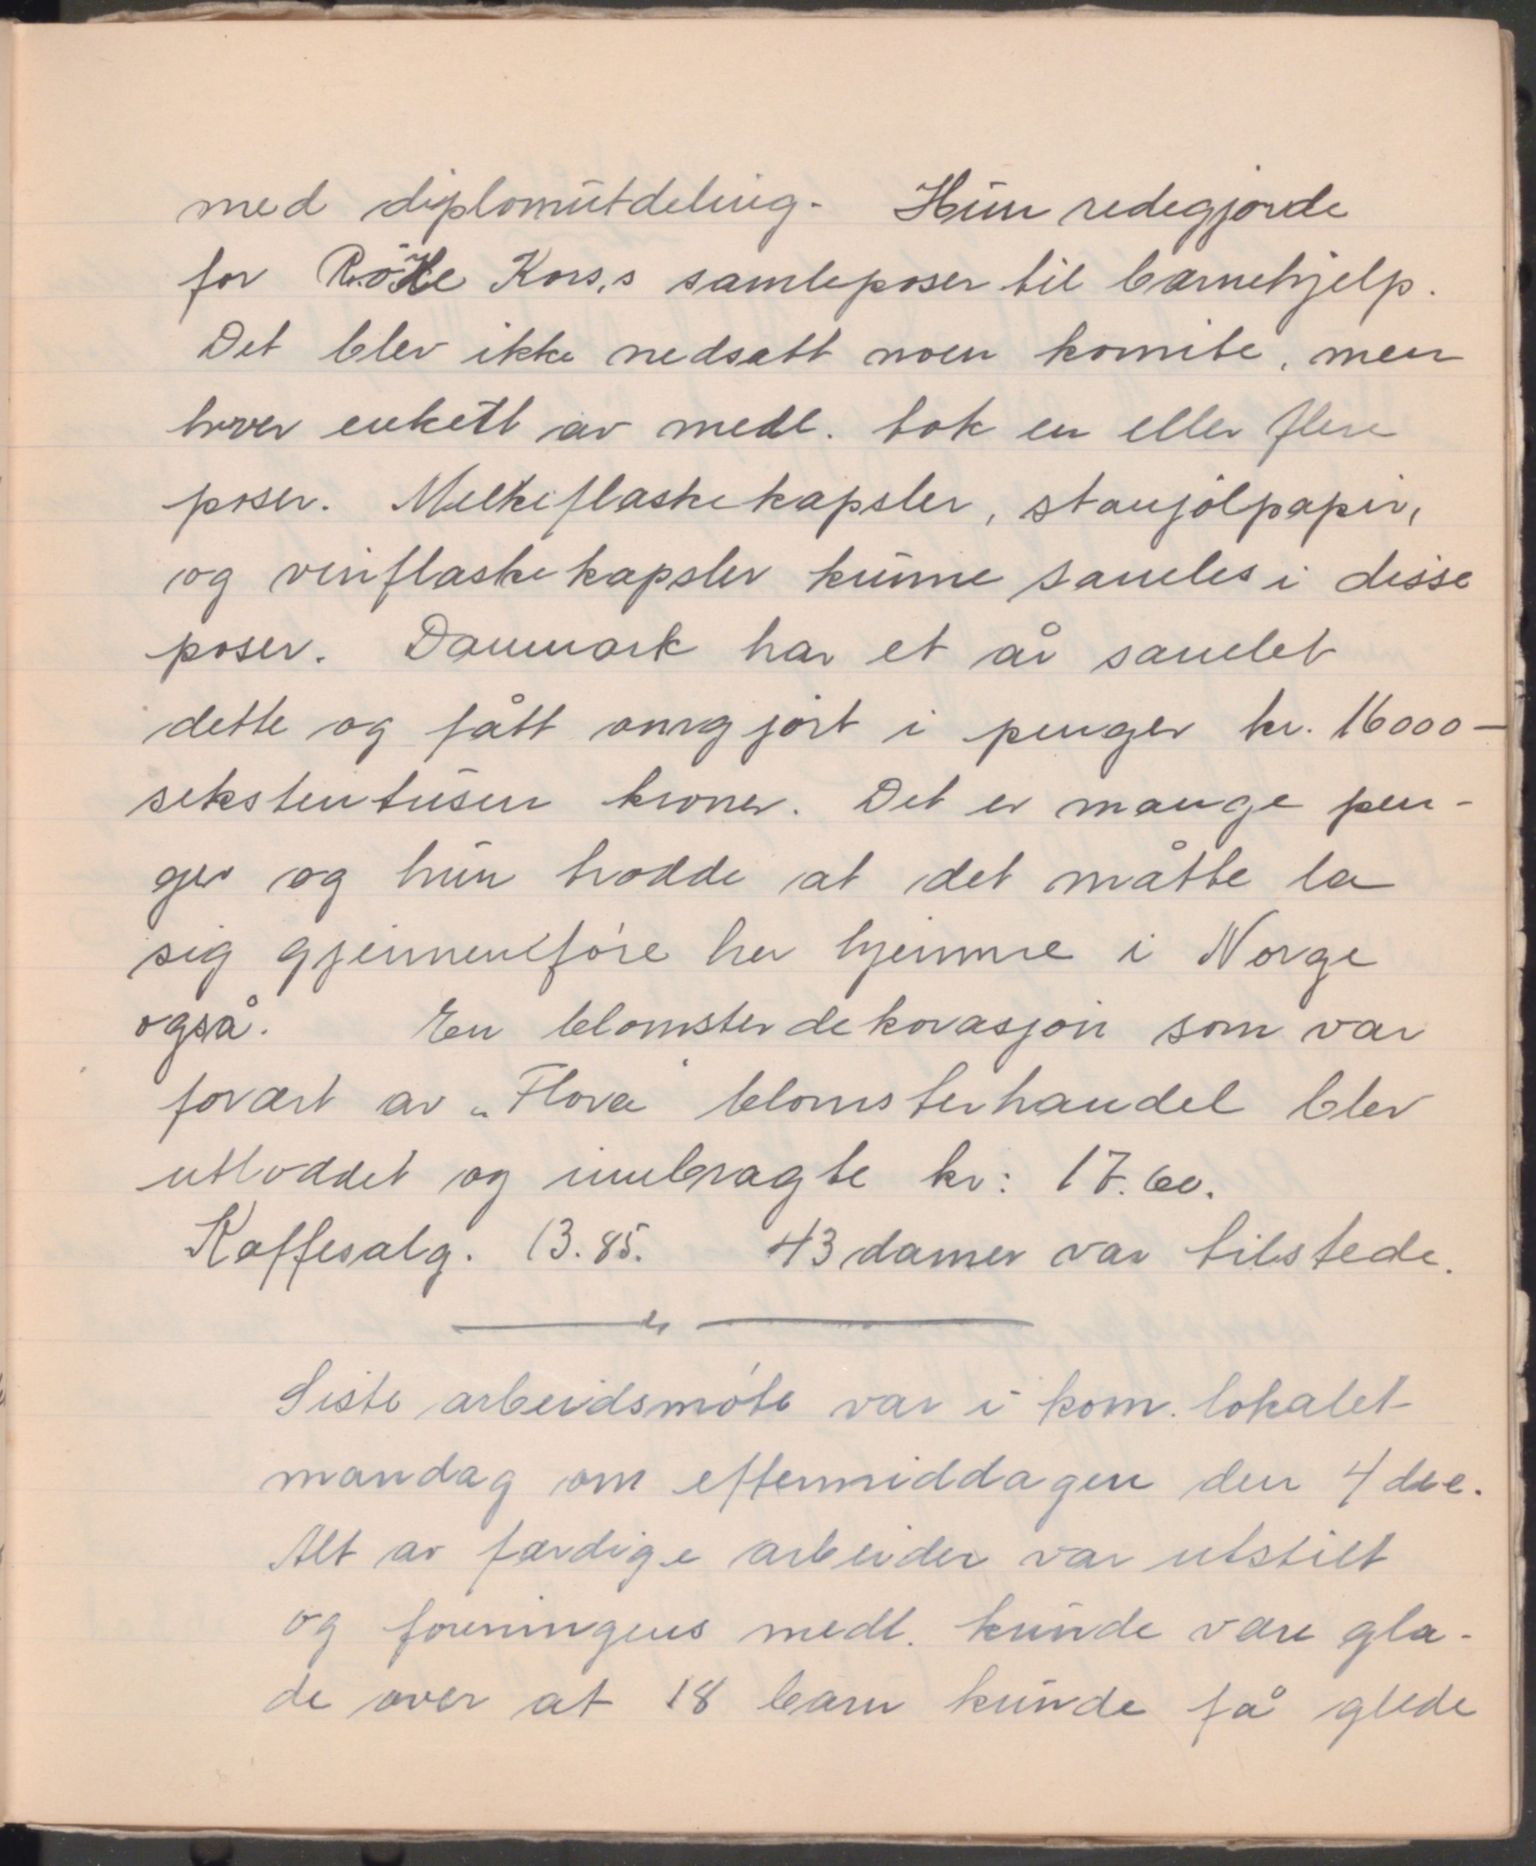 med diplomutdeling. Hun redegjorde
for Røde Kors,s samleposer til barnehjelp.
Det blev ikke nedsatt noen komite, men
hver enkelt av medl. tok en eller flere
poser. Melkeflaskekapsler, stanjolpapir,
og vinflaskekapsler kunne samles i disse
poser. Danmark har et år samlet
dette og fått omgjort i penger kr. 16000 –
sekstentusen kroner. Det er mange pen-
ger og hun trodde at det måtte la
sig gjennemføre her hjemme i Norge
også. En blomsterdekorasjon som var
foræret av „Flora" blomsterhandel blev
utloddet og innbragte kr: 17.60.
Kaffesalg. 13.85. 43 damer var tilstede.
Siste arbeidsmøte var i kom. lokalet
mandag om eftermiddagen den 4 des.
Alt av færdige arbeider var utstilt
og foreningens medl. kunde være gla-
de over at 18 barn kunde få glede